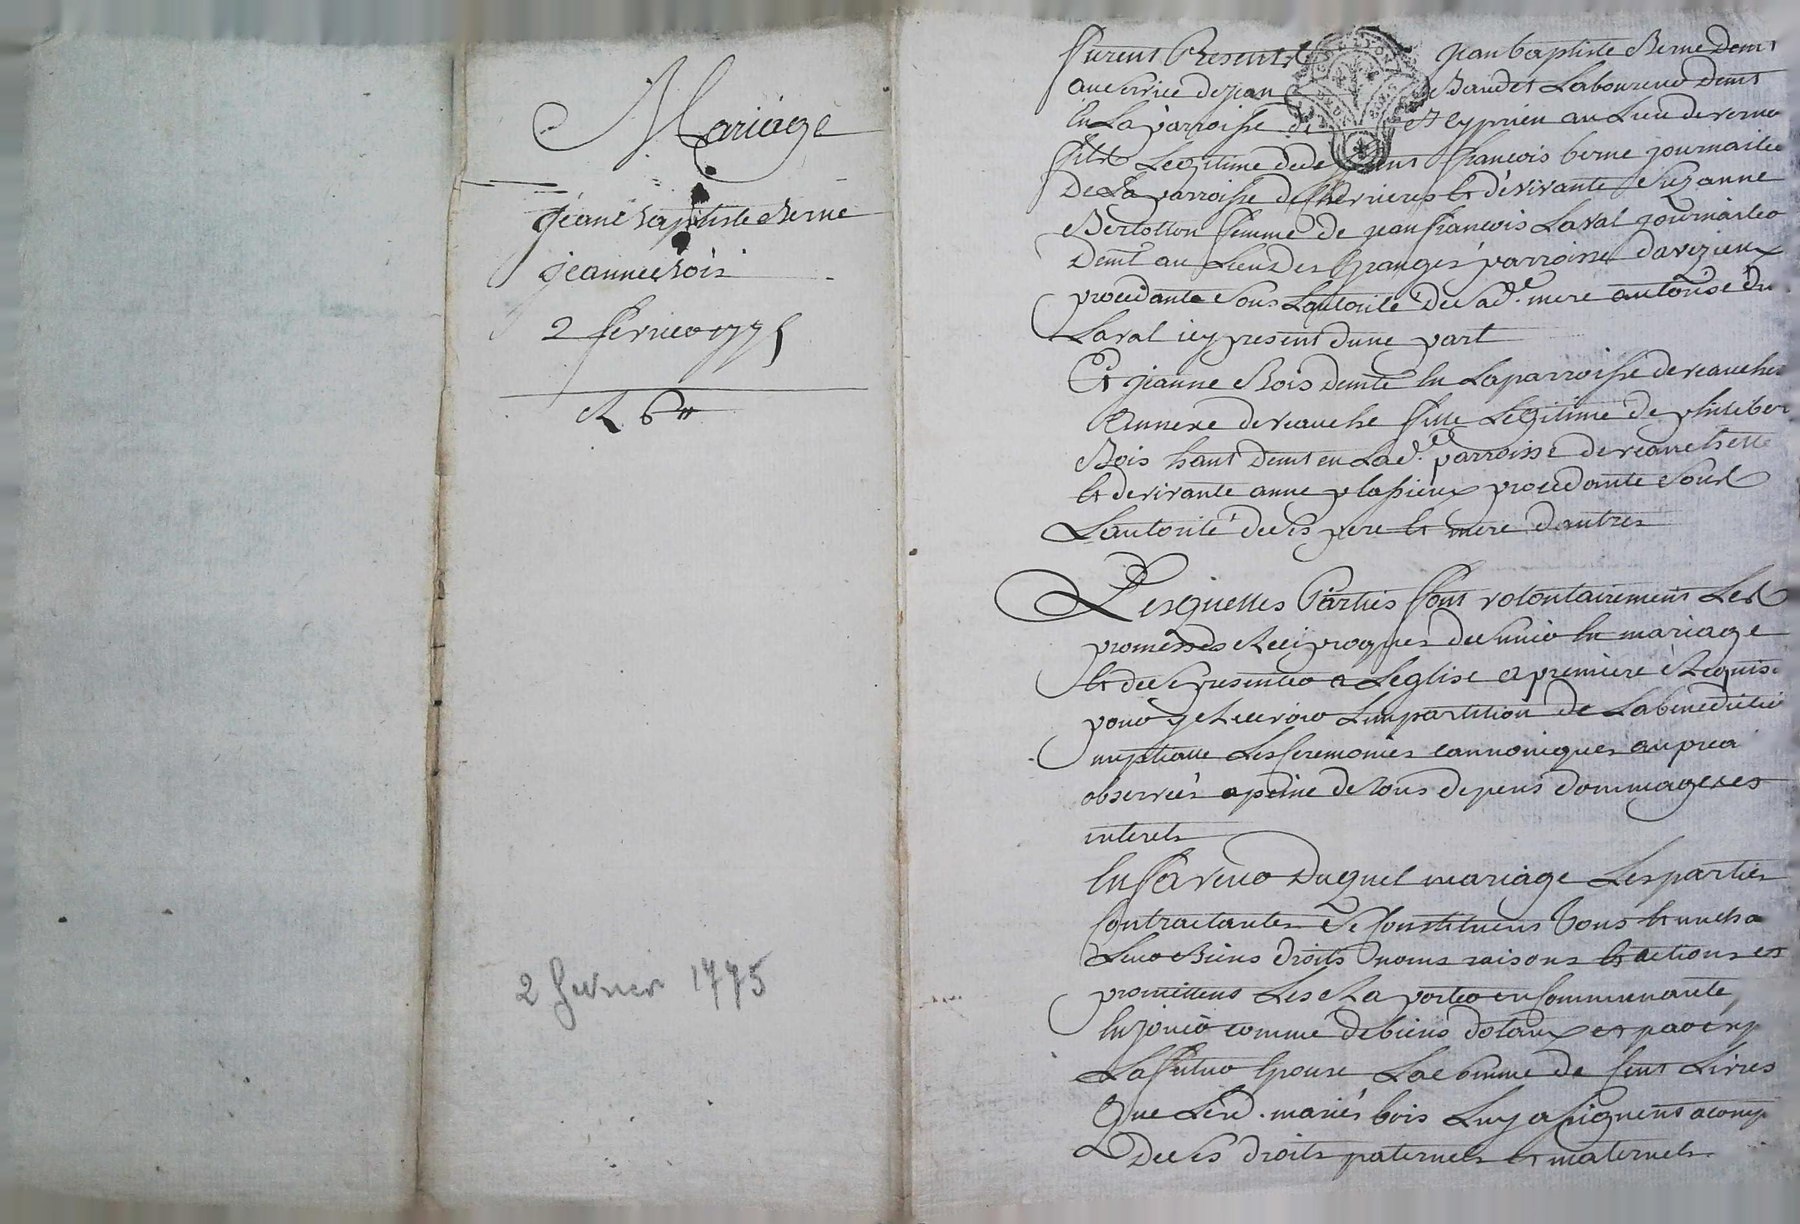 Mariage
jean Baptiste Berne
jeanne Bois
2 fevrier 1775
R 6#
2 fevrier 1775
furent Presents jean baptiste Berne demt
au service de jean Baudet Laboureur demt
en La parroisse de St Cyprien au Lieu de
fils Legitime de defunt francois berne journalier
De La parroisse de Chevrieres et de vivante Suzanne
Bertollon femme de jean francois Laval journalier
Demt au Lieu des granges parroisse daveizieux
procedante sous Lautorité de sade. mere autorisé du
Laval icy present dune part
Et jeanne Bois demte en La parroisse de veauchette
annexe de veauche fille Legitime de philibert
Bois hant demt en Lade. parroisse de veauchette
et de vivante anne plassieux procedante sous
Lautorité de ses pere et mere dautres
Lesquelles Parties font volontairement Les
promesses Reciproques de sunir en mariage
et de se presenter a Leglise a premiere Requisi
pour y Recevoir Limpartition de La benedictio
nuptialle Les Ceremonies cannoniques au prea
observées a peine de tous depens dommages et
interets
En faveur Duquel mariage Les parties
Contractantes se Constituent tous et uncha
Leur Biens droits noms raisons et actions et
promettens Les La porter en Communauté
En jouir comme de biens dotaux et par exp
La future Epouse La somme de Cent Livres
Que Lesd. mariés bois Luy assignent acomp
De ses droits paternels et maternels